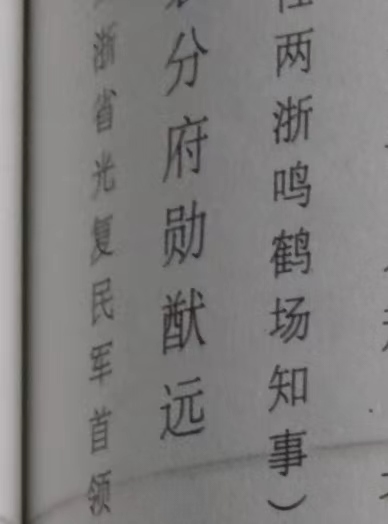 两浙鸣鹤场知事）
分府勋猷远
浙省光复民军首领